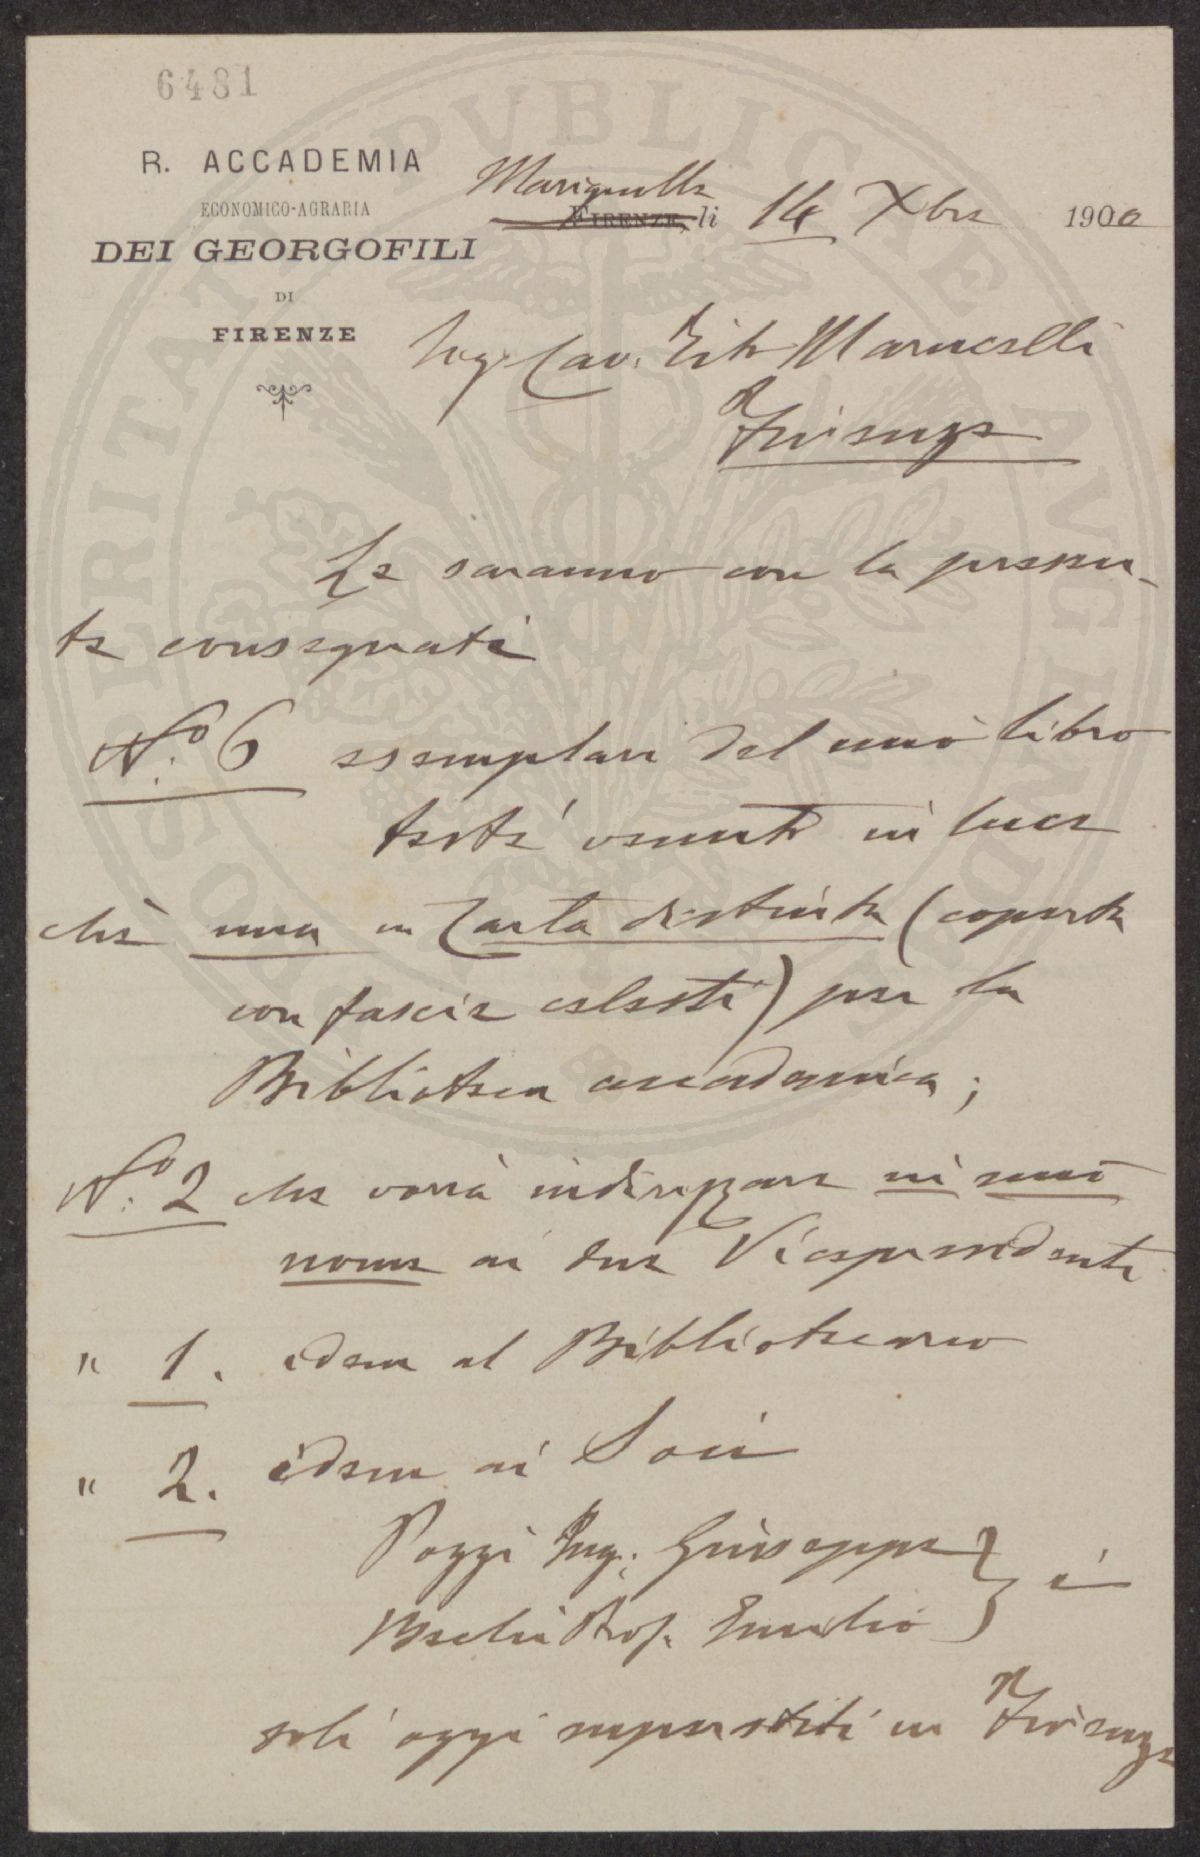 6481
R. ACCADEMIA
ECONOMICO-AGRARIA
DEI GEORGOFILI
DI
FIRENZE
Marignolle
FIRENZE, li 14 Xbre 1900
Sig. Cav. Tito Marucelli
Firenze
Le saranno con la presen-
te consegnati
N.o 6 esemplari del mio libro
testé venuto in luce
che uno in Carta distinta (coperta
con fascie celesti) per la
Biblioteca accademica;
N.o 2 che vorrà indirizzare in mio
nome ai due Vicepresidenti
" 1. idem al Bibliotecario
" 2. idem ai Soci
Pozzi Ing. Giuseppe } i
Bechi Prof. Emilio
soli oggi superstiti in Firenze
PROSPERITATI PVBLICAE AVGENDAE